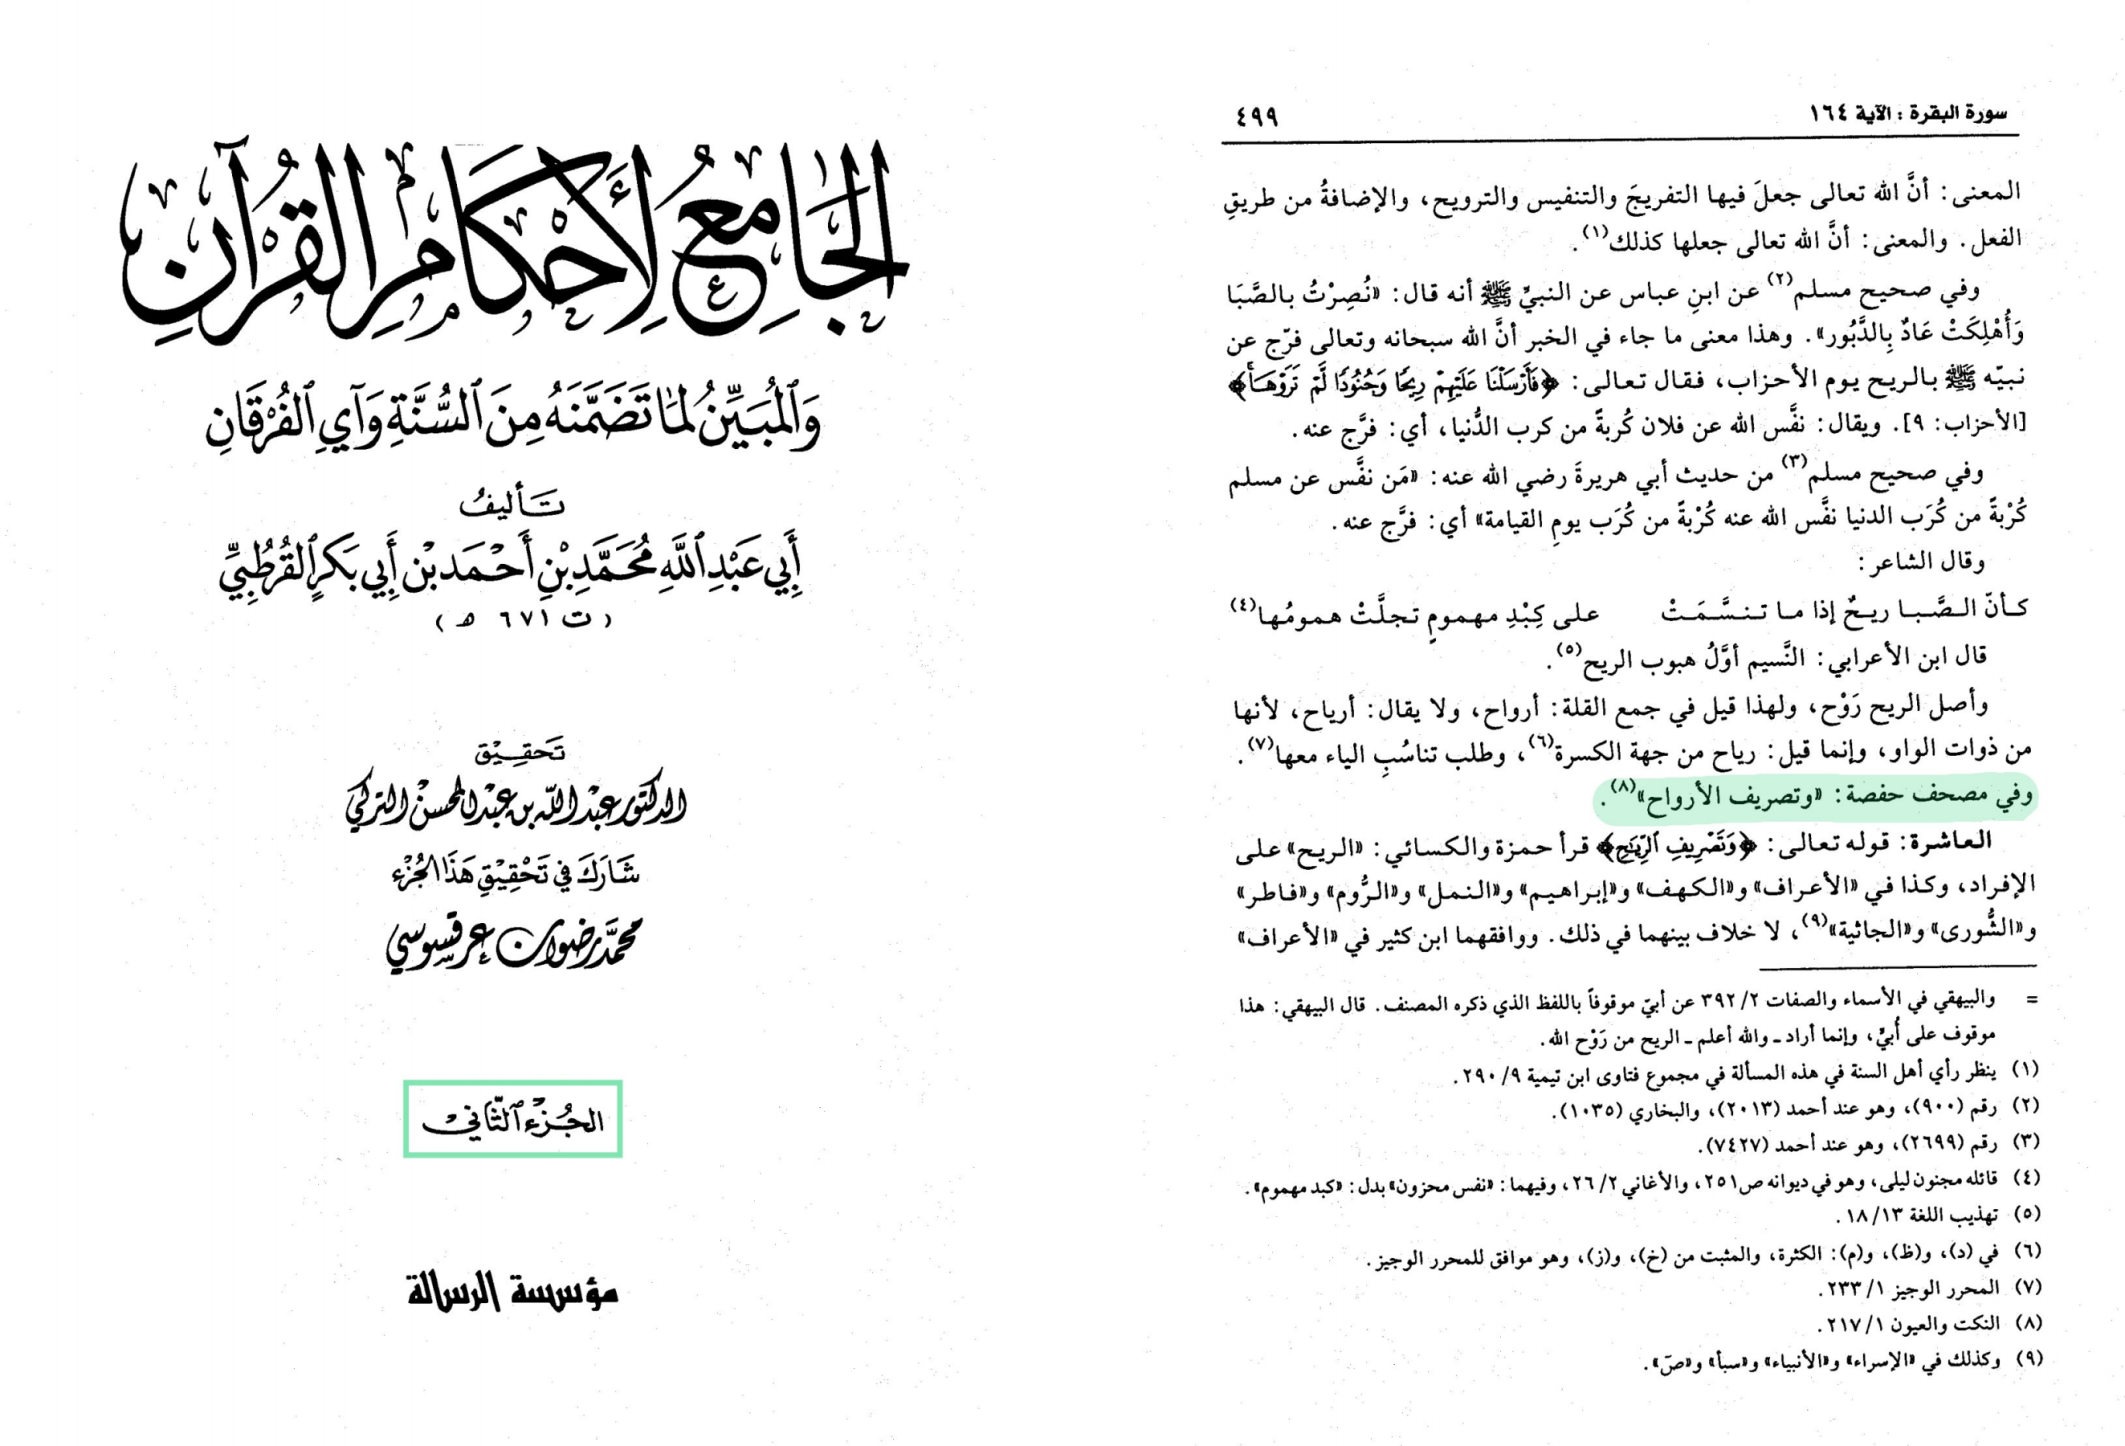 الجامع لأحكام القرآن
وَالمُبَيِّنُ لمَا تَضَمَّنَهُ مِنَ السُّنَّةِ وَآيِ الفُرْقَانِ
تَأليفُ
أَبِي عَبْدِ اللَّهِ مُحَمَّدِ بْنِ أَحْمَد بْن أَبِي بَكرٍ القُرطُبِيِّ
(ت ٦٧١ هـ)
تَحقِيق
الدكتور عبد الله بن عبد المحسن التركي
شَارَكَ فِي تَحْقِيْقِ هَذَا الجُزْء
محمَّد رضوان عرقسوسي
الجُزء الثّاني
مؤسسة الرسالة
سورة البقرة : الآية ١٦٤
٤٩٩
المعنى: أنَّ الله تعالى جعلَ فيها التفريجَ والتنفيس والترويح، والإضافةُ من طريقِ
الفعل. والمعنى: أنَّ الله تعالى جعلها كذلك(١).
وفي صحيح مسلم(٢) عن ابنِ عباس عن النبيِّ ﷺ أنه قال: «نُصِرْتُ بالصَّبَا
وَأُهْلِكَتْ عَادٌ بِالدَّبُور». وهذا معنى ما جاء في الخبر أنَّ الله سبحانه وتعالى فرّج عن
نبيّه ﷺ بالريح يوم الأحزاب، فقال تعالى: ﴿فَأَرْسَلْنَا عَلَيْهِمْ رِيحًا وَجُنُودًا لَّمْ تَرَوْهَا﴾
[الأحزاب: ٩]. ويقال: نفَّس الله عن فلان كُربةً من كرب الدُّنيا، أي: فرَّج عنه.
وفي صحيح مسلم(٣) من حديث أبي هريرةَ رضي الله عنه: «مَن نفَّس عن مسلم
كُرْبةً من كُرَب الدنيا نفَّس الله عنه كُرْبةً من كُرَب يومِ القيامة» أي: فرَّج عنه.
وقال الشاعر:
كأنّ الصَّبا ريحٌ إذا ما تنسَّمَتْ على كِبْدِ مهمومٍ تجلَّتْ همومُها(٤)
قال ابن الأعرابي: النَّسيم أوَّلُ هبوب الريح(٥).
وأصل الريح رَوْح، ولهذا قيل في جمع القلة: أرواح، ولا يقال: أرياح، لأنها
من ذوات الواو، وإنما قيل: رياح من جهة الكسرة(٦)، وطلب تناسُبِ الياء معها(٧).
وفي مصحف حفصة: «وتصريف الأرواح»(٨).
العاشرة: قوله تعالى: ﴿وَتَصْرِيفِ الرِّيَاحِ﴾ قرأ حمزة والكسائي: «الريح» على
الإفراد، وكذا في «الأعراف» و«الكهف» و«إبراهيم» و«النمل» و«الرُّوم» و«فاطر»
و«الشُّورى» و«الجاثية»(٩)، لا خلاف بينهما في ذلك. ووافقهما ابن كثير في «الأعراف»
= والبيهقي في الأسماء والصفات ٢/ ٣٩٢ عن أبيّ موقوفاً باللفظ الذي ذكره المصنف. قال البيهقي: هذا
موقوف على أُبيٍّ، وإنما أراد ـ والله أعلم ـ الريح من رَوْح الله.
(١) ينظر رأي أهل السنة في هذه المسألة في مجموع فتاوى ابن تيمية ٩/ ٢٩٠.
(٢) رقم (٩٠٠)، وهو عند أحمد (٢٠١٣)، والبخاري (١٠٣٥).
(٣) رقم (٢٦٩٩)، وهو عند أحمد (٧٤٢٧).
(٤) قائله مجنون ليلى، وهو في ديوانه ص٢٥١، والأغاني ٢/ ٢٦، وفيهما: «نفس محزون» بدل: «كبد مهموم».
(٥) تهذيب اللغة ١٣/ ١٨.
(٦) في (د)، و(ظ)، و(م): الكثرة، والمثبت من (خ)، و(ز)، وهو موافق للمحرر الوجيز.
(٧) المحرر الوجيز ١/ ٢٣٣.
(٨) النكت والعيون ١/ ٢١٧.
(٩) وكذلك في «الإسراء» و«الأنبياء» و«سبأ» و«صَ».